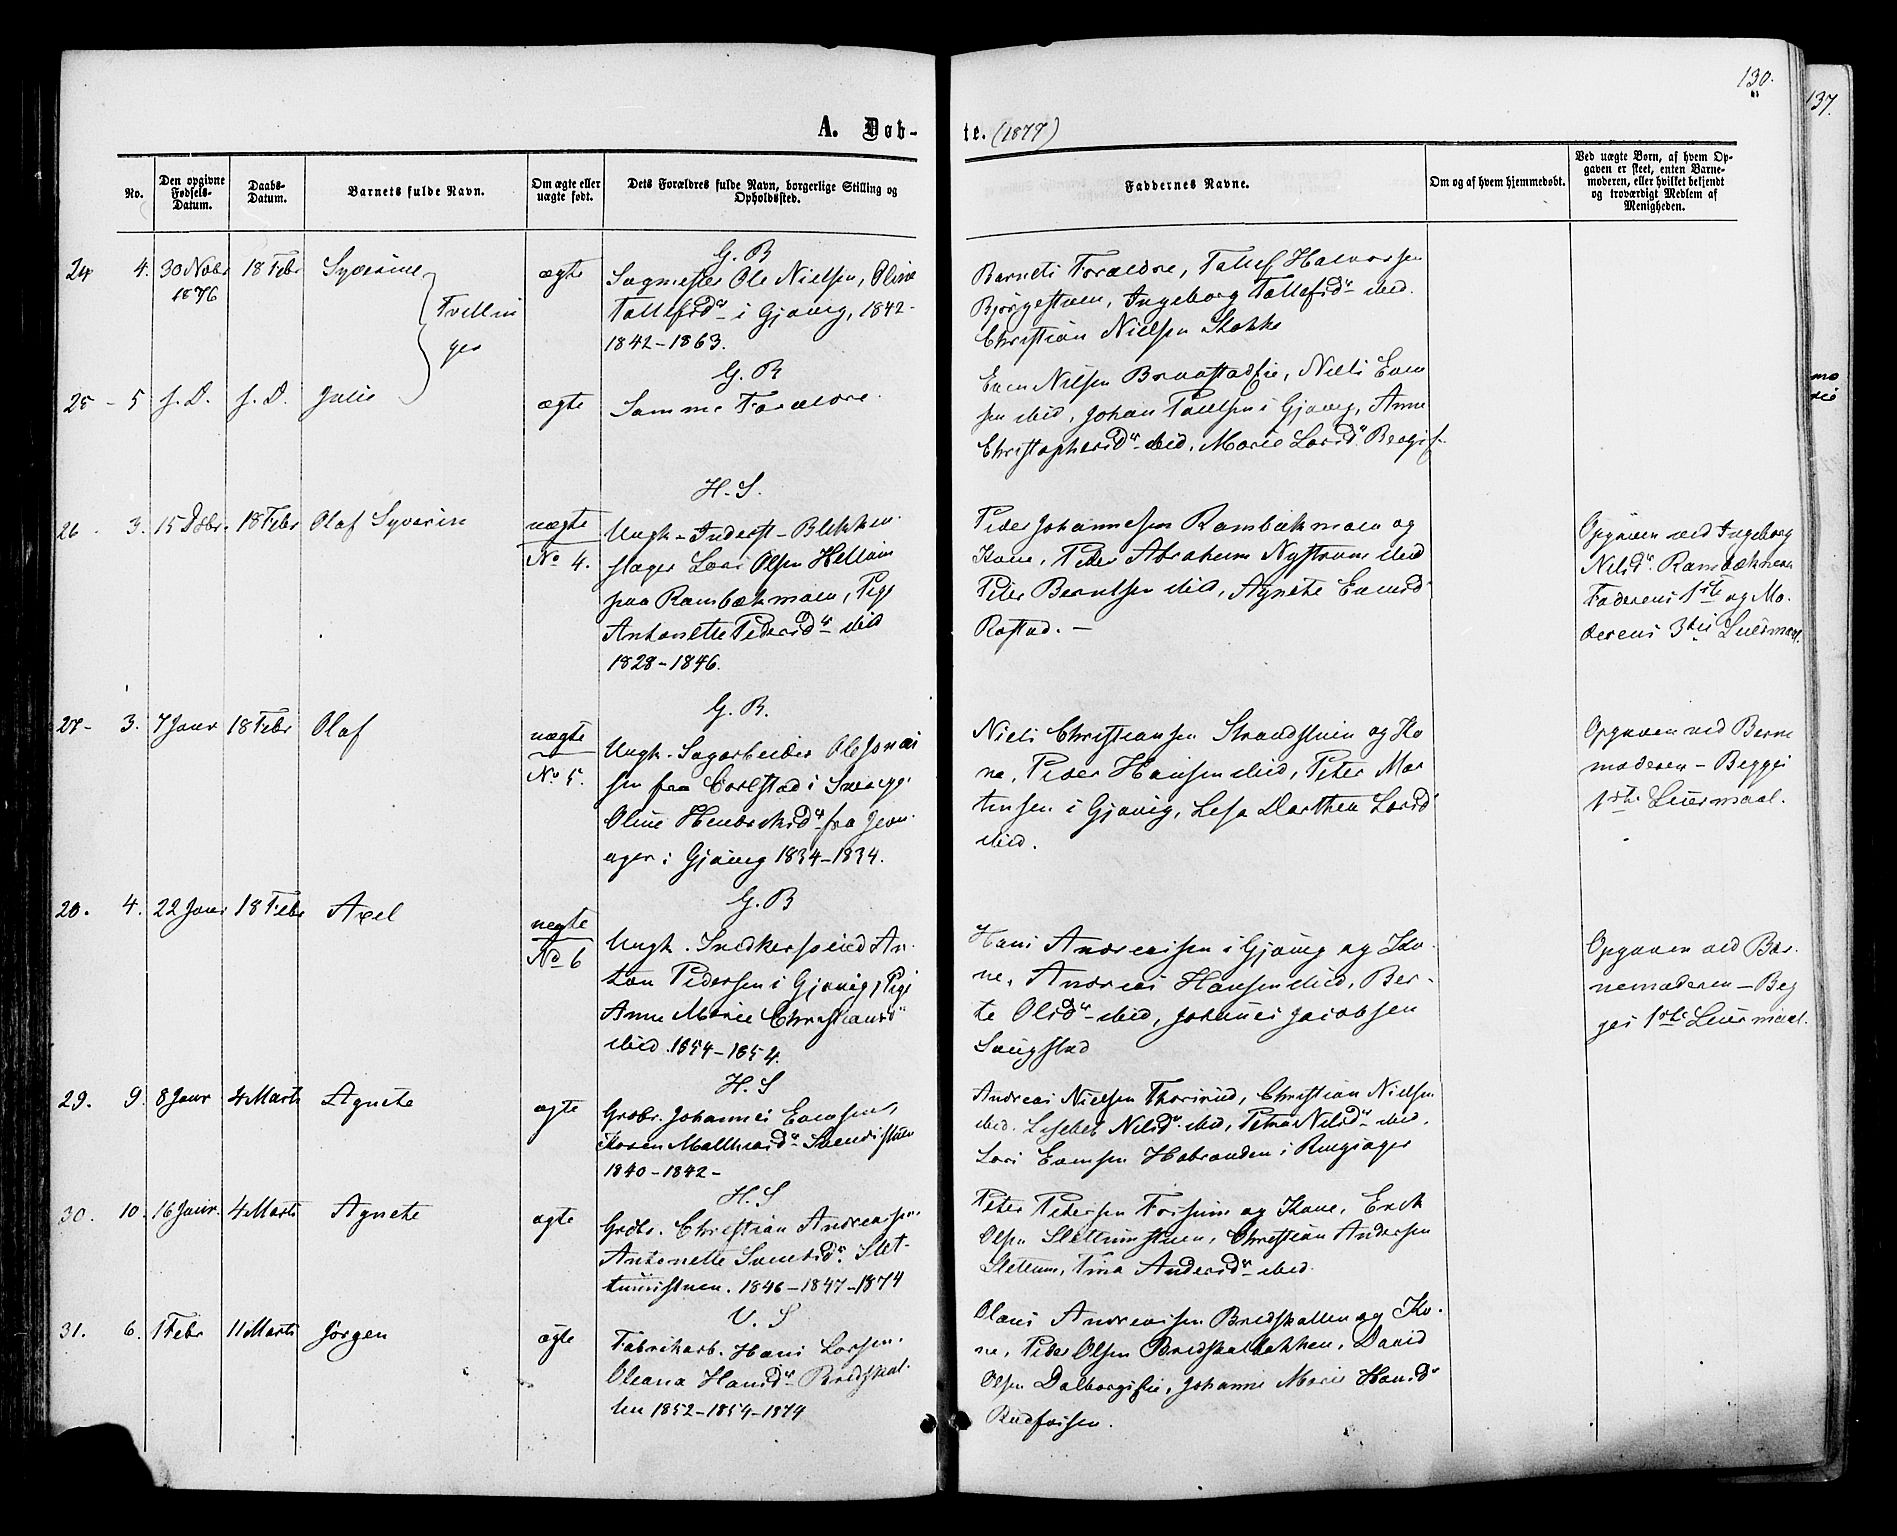 130.
137.
A. Døb-
te. (1877)
No.
Den opgivne Fødsels-Datum.
Daabs-Datum.
Barnets fulde Navn.
Om ægte eller uægte født.
Dets Forældres fulde Navn, borgerlige Stilling og Opholdssted.
Faddernes Navne.
Om og af hvem hjemmedøbt.
Ved uægte Børn, af hvem Opgaven er skeet, enten Barnemoderen, eller hvilket bekjendt og troværdigt Medlem af Menigheden.
24 4. 30 Novbr 1876 18 Febr Syverine Tvillinger ægte
G. B
Sagmester Ole Nielsen, Oline
Tollefsdr i Gjøvig, 1842-
1842-1863.
Barnets Forældre, Tollef Halvorsen
Bjørgestuen, Ingeborg Tollefsdr ibid.
Christian Nielsen Stokke
25 - 5 s. D. s. D. Julie ægte
G. B
Samme Forældre.
Even Nilsen Braastadeie, Niels Even
sen ibid, Johan Paulsen i Gjøvig, Anne
Christophersdr ibid, Marie Larsd.
26 - 3. 15 Dcbr. 18 Febr Olaf Syverin uægte No 4.
H. S.
Ungk - Inderst - Blikken
slager Lars Olsen
paa Rambækmoen, Pige
Antonette Pedersdr ibid
1828-1846.
Peder Johannesen Rambækmoen og
Kone, Peder Abraham Nystrøm ibid
Peter Berntsen ibid, Agnete Evensd
Rostad. -
Opgaven ved Ingeborg
Nilsdr. Rambækmoen
Faderens 1ste og Mo-
derens 3die Leiermaal.
27- 3. 7 Janr 18 Febr Olaf uægte No 5.
G. B.
Ungk. Sagarbeider Ole Jonas
sen fra Carlstad i Sverige
Oline Henriksdr fra Jevn-
ager i Gjøvig 1834-1834.
Niels Christiansen Strandstuen og Ko
ne, Peder Hansen ibid, Peter Mor
tensen i Gjøvig, Lisa Dorthea Larsd
ibid.
Opgaven ved Barne
moderen - Begges
1ste Leiermaal.
28. 4. 22 Janr 18 Febr Axel uegte No 6
G. B
Ungk. Snedkersvend An-
ton Pedersen i Gjøvig, Pige
Anne Marie Christiansdr
ibid. 1854-1854.
Hans Andreassen i Gjøvig og Ko-
ne, Andreas Hansen ibid, Ber-
te Olsdr ibid, Johannes Jacobsen
Saugstad
Opgaven ved Bar-
nemoderen - Beg
ges 1ste Leiermaal.
29. 9. 8 Janr 4 Marts Agnete ægte
H. S
Grdbr. Johannes Evensen,
Karen Mathiasdr Svenstuen
1840-1842-
Andreas Nielsen Thorsrud, Christian Nielsen
ibid. Lisebet Nilsdr. ibid, Petra Nilsdr ibid.
Lars Evensen Habranden i Ringsager
30. 10. 16 Janr. 4 Marts Agnete ægte
H. S
Grdbr. Christian Andreasen,
Antonette Svendsdr. Slet-
tumstuen. 1846-1847-1874
Peter Pedersen Forseim og Kone, Erik
Olsen Slettumstuen, Christian Andersen
Slettum, Tina Andersdr ibid
31. 6. 1 Febr 11 Marts Jørgen ægte
V. S
Fabrikarb. Hans Larsen.
Oleana Hansdr Bredskal-
len 1852-1854-1874
Olaus Andreassen Bredskallen og Ko-
ne, Peder Olsen Bredskalbakken, David
Olsen Dalborgseie, Johanne Marie Hansdr